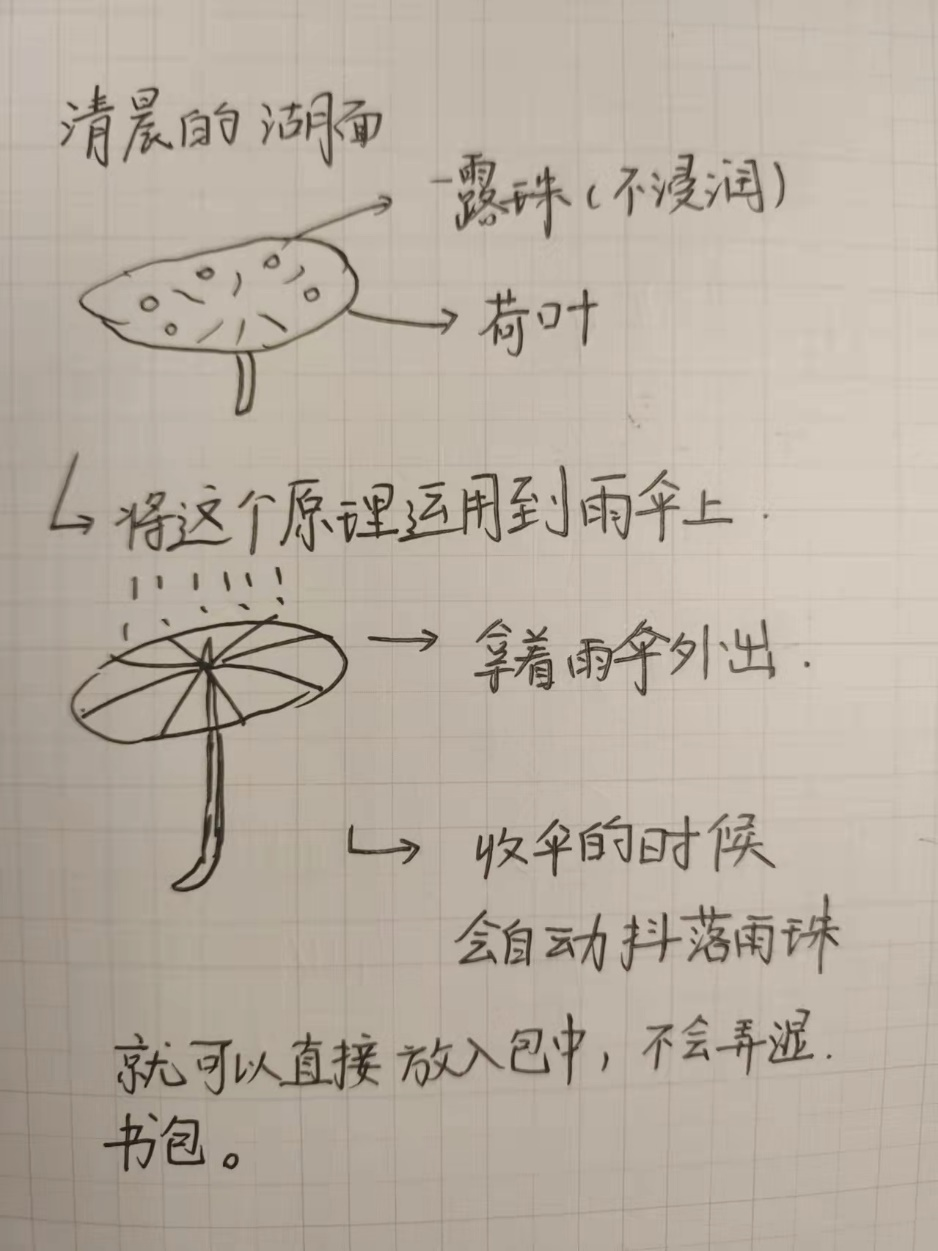 清晨的湖面
露珠(不浸润)
荷叶
将这个原理运用到雨伞上.
拿着雨伞外出.
收伞的时候
会自动抖落雨珠
就可以直接放入包中,不会弄湿.
书包。